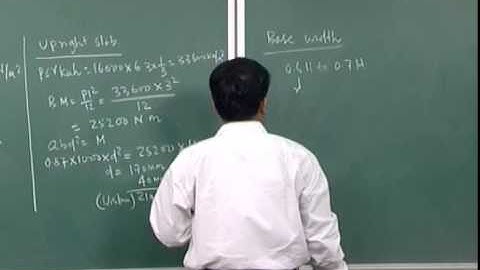 N/m²
Upright slab
P = γkah = 16000×6.3×1/3 = 33600 N/m²
B.M = pl²/12 = 33,600×3²/12
= 25200 N m
Qbd² = M
0.87×1000×d² = 25200×
d = 170mm
40mm
210
Base width
0.6H to 0.7H
↓